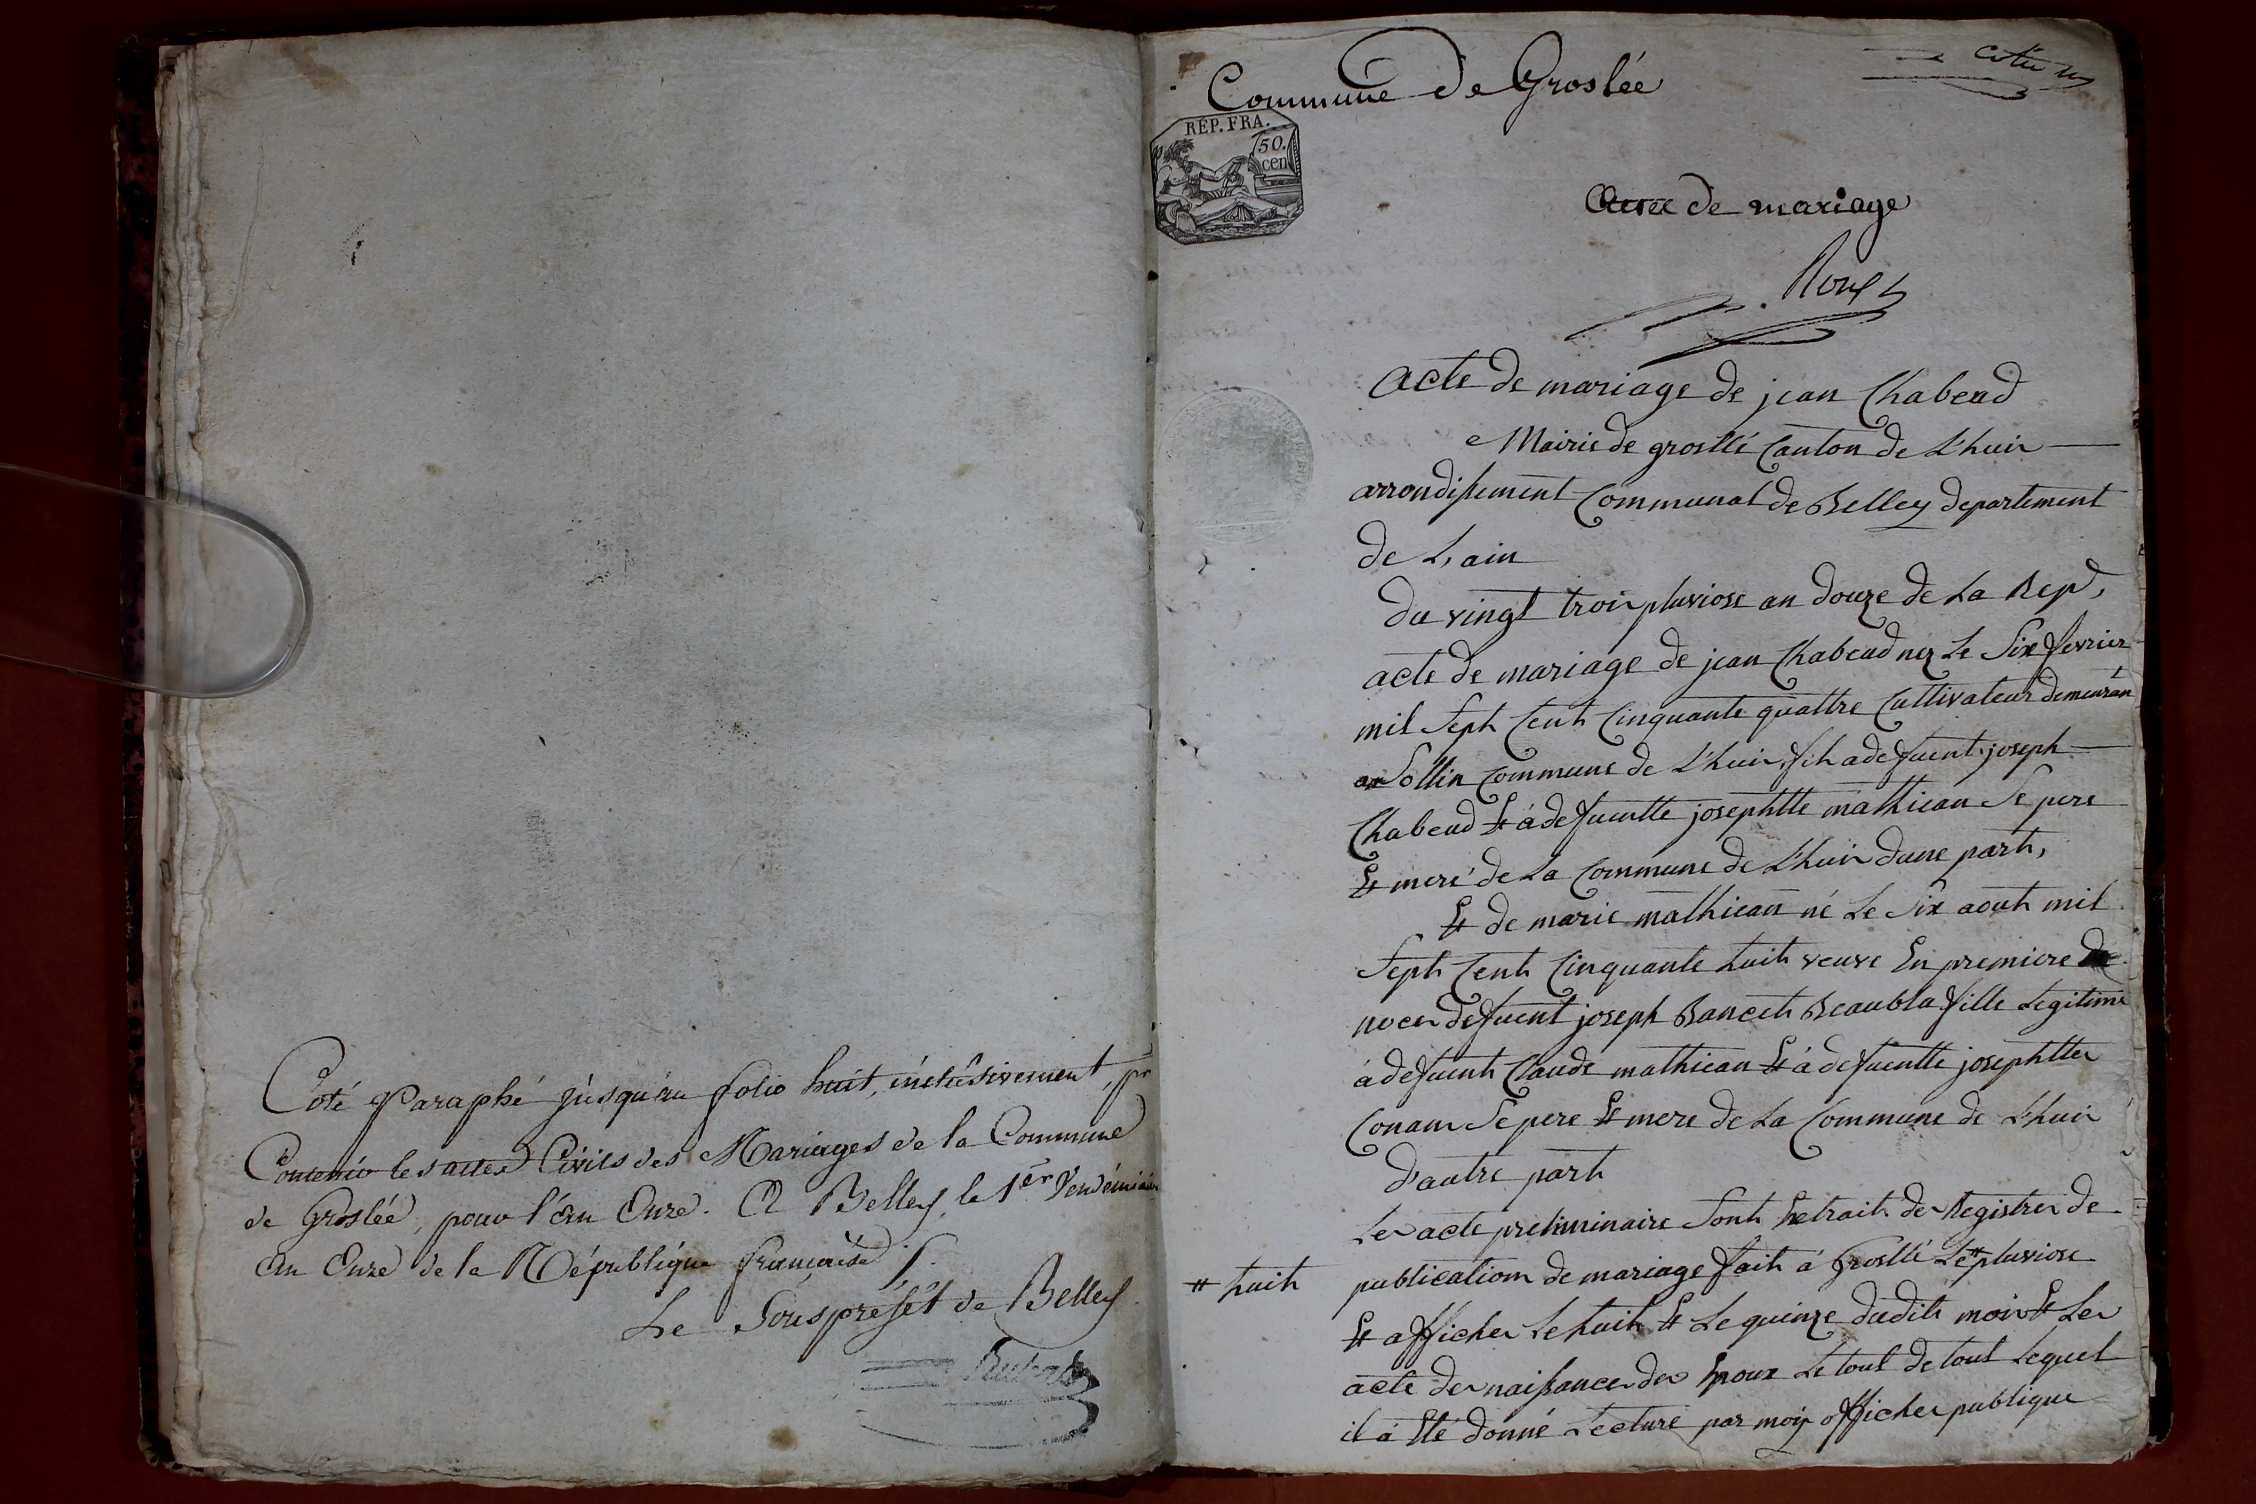 Coté Paraphé jusqu'au folio huit, inclusivement, pr
Contenir les actes Civils des Mariages de la Commune
de Groslée, pour l'an Onze. A Belley, le 1er Vendémiaire
An Onze de la République française
Le Souspréfét de Belley
Commune de Groslée
RÉP. FRA.
50.
cen
Actes de mariage
Roux
Acte de mariage de jean Chabeud
Mairie de groslté Canton de L'huis
arrondissement Communal de Belley departement
de L'ain
du vingt trois pluviose an douze de La Rep,
acte de mariage de jean Chabeud nez Le Six fevrier
mil Sept Cent Cinquante quattre Cultivateur demeurán
a Sollin Commune de L'huis, fils a defuent joseph
Chabeud Et á defuentte josephtte mathieau Se pere
Et meré de La Commune de L'huis dune part,
Et de marie mathieau né Le Six aout mil
Sept Cent Cinquante huit veuve En premiere
noces defuent joseph Bancet Beaubla fille Legitime
á defuent Claude mathieau Et á defuentte josephttes
Conam Se pere Et mere de La Commune de L'huis
d'autre part
Les acte preliminaire Sont Extrait des Registres de
publications de mariage fait á groslté Le # pluviose
# huit
Et afficher Le huit Et Le quinze dudit mois Et Les
acte des naissances des Epoux Le tout de tout Lequel
il á Eté donné Lecture par moy officher publique